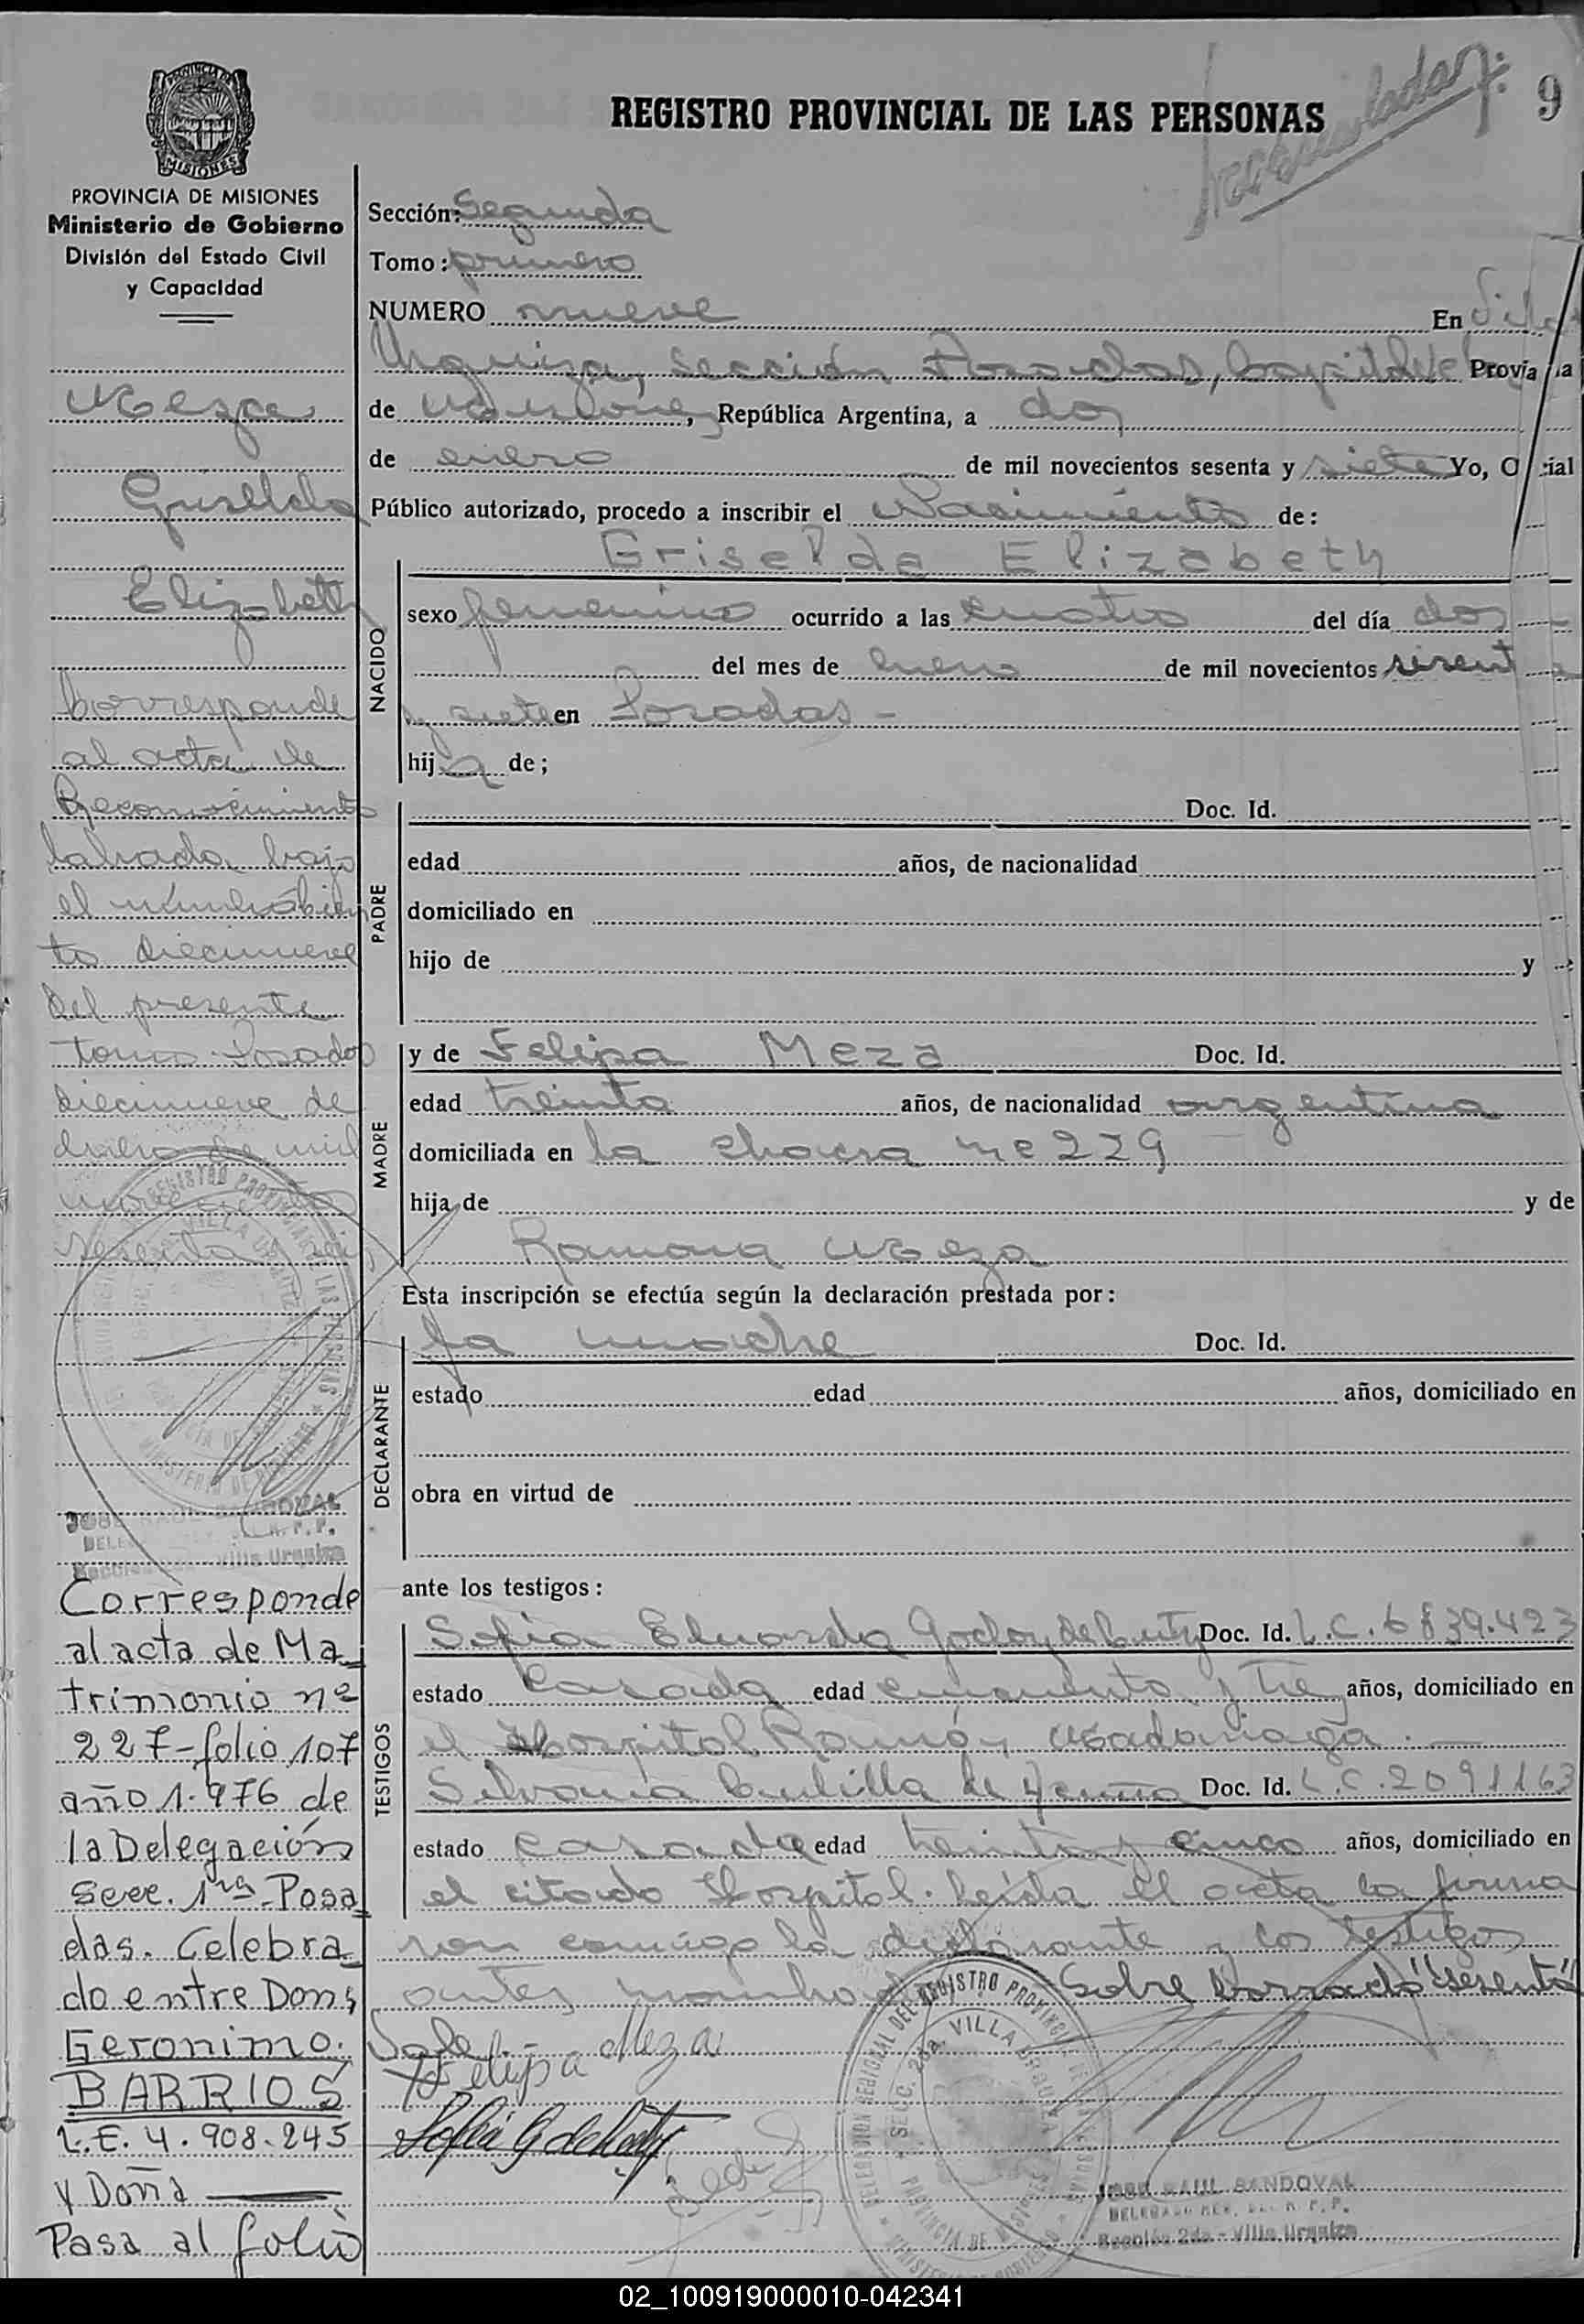 9
REGISTRO PROVINCIAL DE LAS PERSONAS
PROVINCIA DE
MISIONES
PROVINCIA DE MISIONES
Ministerio de Gobierno
División del Estado Civil
y Capacidad
Meza
Griselda
Elizabeth
Corresponde
al acta de
Reconocimiento
labrada bajo
el número
diecinueve
del presente
tomo. Posadas
diecinueve de
enero de mil
sesenta
Corresponde
al acta de Ma_
trimonio nº
227-folio 107
año 1.976 de
la Delegación
Secc. 1ra Posa
das. Celebra_
do entre Don;
Geronimo.
BARRIOS
L.E. 4.908.245
Y Doña
Pasa al folio
Sección: Segunda
Tomo: primero
NUMERO nueve En Villa
Urquiza, sección Posadas, Capital de Provincia
de Misiones, República Argentina, a dos
de enero de mil novecientos sesenta y siete Yo, Oficial
Público autorizado, procedo a inscribir el Nacimiento de:
NACIDO
Griselda Elizabeth
sexo femenino ocurrido a las cuatro del día dos
del mes de enero de mil novecientos sesenta
y siete en Posadas -
hija de;
PADRE
Doc. Id.
edad años, de nacionalidad
domiciliado en
hijo de y
MADRE
y de Felipa Meza Doc. Id.
edad treinta años, de nacionalidad argentina
domiciliada en la chacra nº 229
hija de y de
Ramona Meza
Esta inscripción se efectúa según la declaración prestada por:
DECLARANTE
la madre Doc. Id.
estado edad años, domiciliado en
obra en virtud de
ante los testigos:
TESTIGOS
Sofia Eduarda Godoy de Doc. Id. L.C. 6839.423
estado casada edad cincuenta y tres años, domiciliado en
el Hospital Ramón Madariaga. —
Silvana de Doc. Id. L.C. 2091163
estado casada edad treinta y cinco años, domiciliado en
el citado Hospital. Leída el acta la firma
ron conmigo la declarante y los testigos
antes Sobre borrado "sesenta"
Vale.-
Felipa Meza
JOSE RAUL SANDOVAL
Sección 2da - Villa Urquiza
02_100919000010-042341